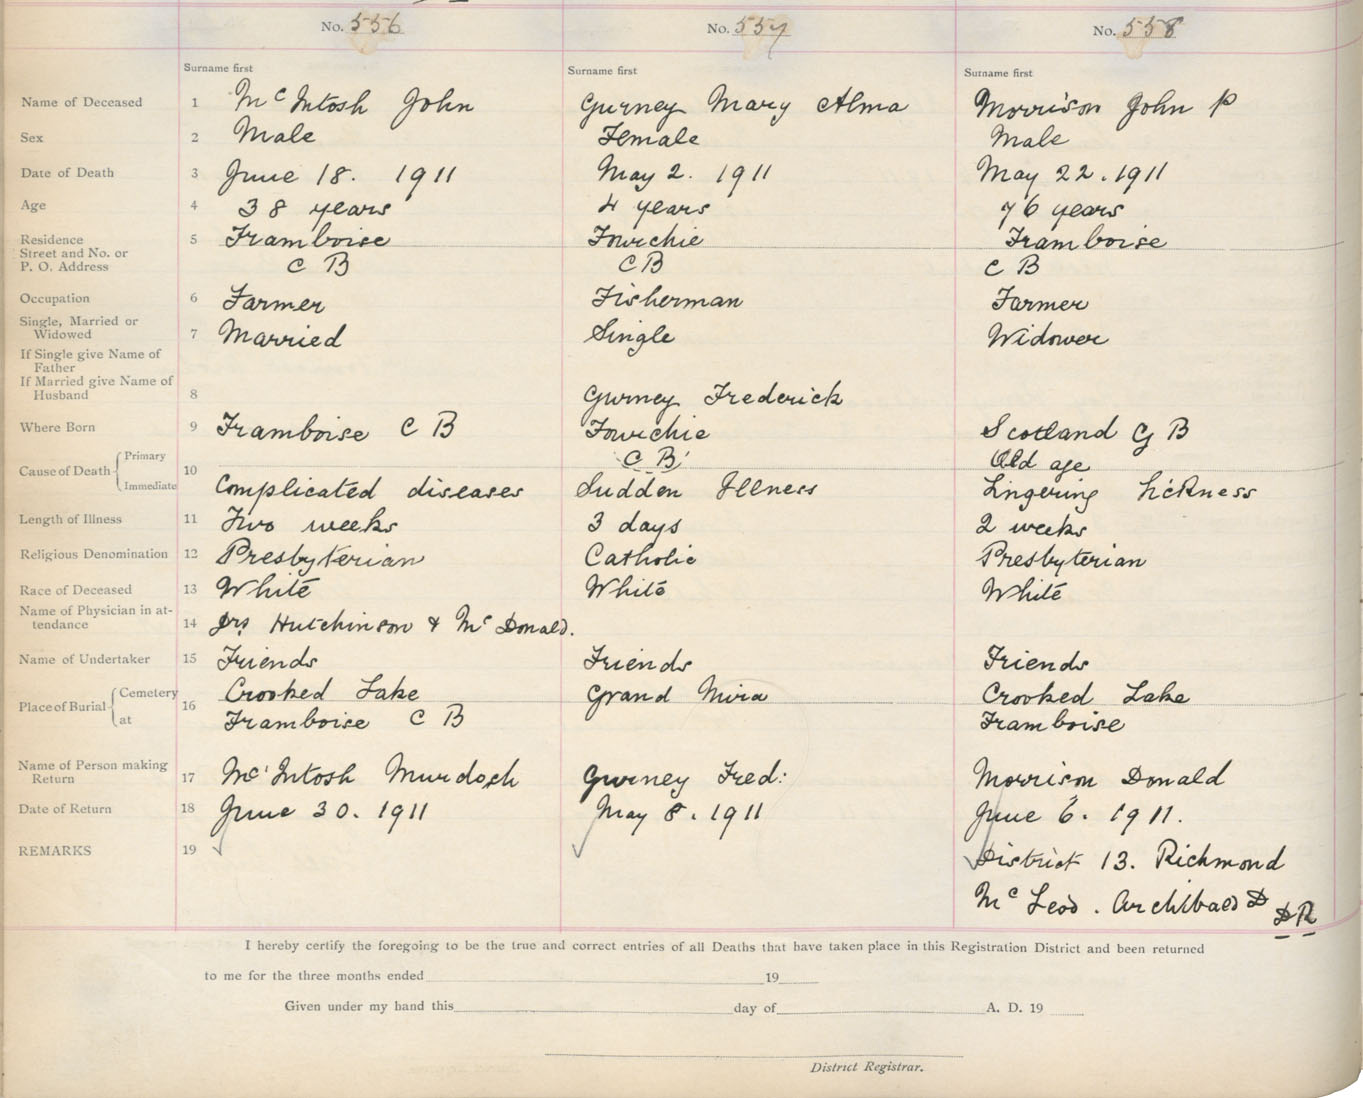 No. 556 No. 557 No. 558
Surname first Surname first Surname first
Name of Deceased 1 McIntosh John Gurney Mary Alma Morrison John P
Sex 2 Male Female Male
Date of Death 3 June 18. 1911 May 2. 1911 May 22. 1911
Age 4 38 years 4 years 76 years
Residence 5 Framboise Fourchie Framboise
Street and No. or
P. O. Address C B C B C B
Occupation 6 Farmer Fisherman Farmer
Single, Married or
Widowed 7 Married Single Widower
If Single give Name of
Father
If Married give Name of
Husband 8 Gurney Frederick
Where Born 9 Framboise C B Fourchie Scotland G B
Cause of Death Primary 10 C B Old age
Immediate Complicated diseases Sudden Illness Lingering Sickness
Length of Illness 11 Two weeks 3 days 2 weeks
Religious Denomination 12 Presbyterian Catholic Presbyterian
Race of Deceased 13 White White White
Name of Physician in at-
tendance 14 Drs Hutchinson & McDonald.
Name of Undertaker 15 Friends Friends Friends
Place of Burial Cemetery 16 Crooked Lake Grand Mira Crooked Lake
at Framboise C B Framboise
Name of Person making
Return 17 McIntosh Murdoch Gurney Fred: Morrison Donald
Date of Return 18 June 30. 1911 May 8. 1911 June 6. 1911.
REMARKS 19 District 13. Richmond
McLeod. Archibald D D R
I hereby certify the foregoing to be the true and correct entries of all Deaths that have taken place in this Registration District and been returned
to me for the three months ended 19
Given under my hand this day of A. D. 19
District Registrar.